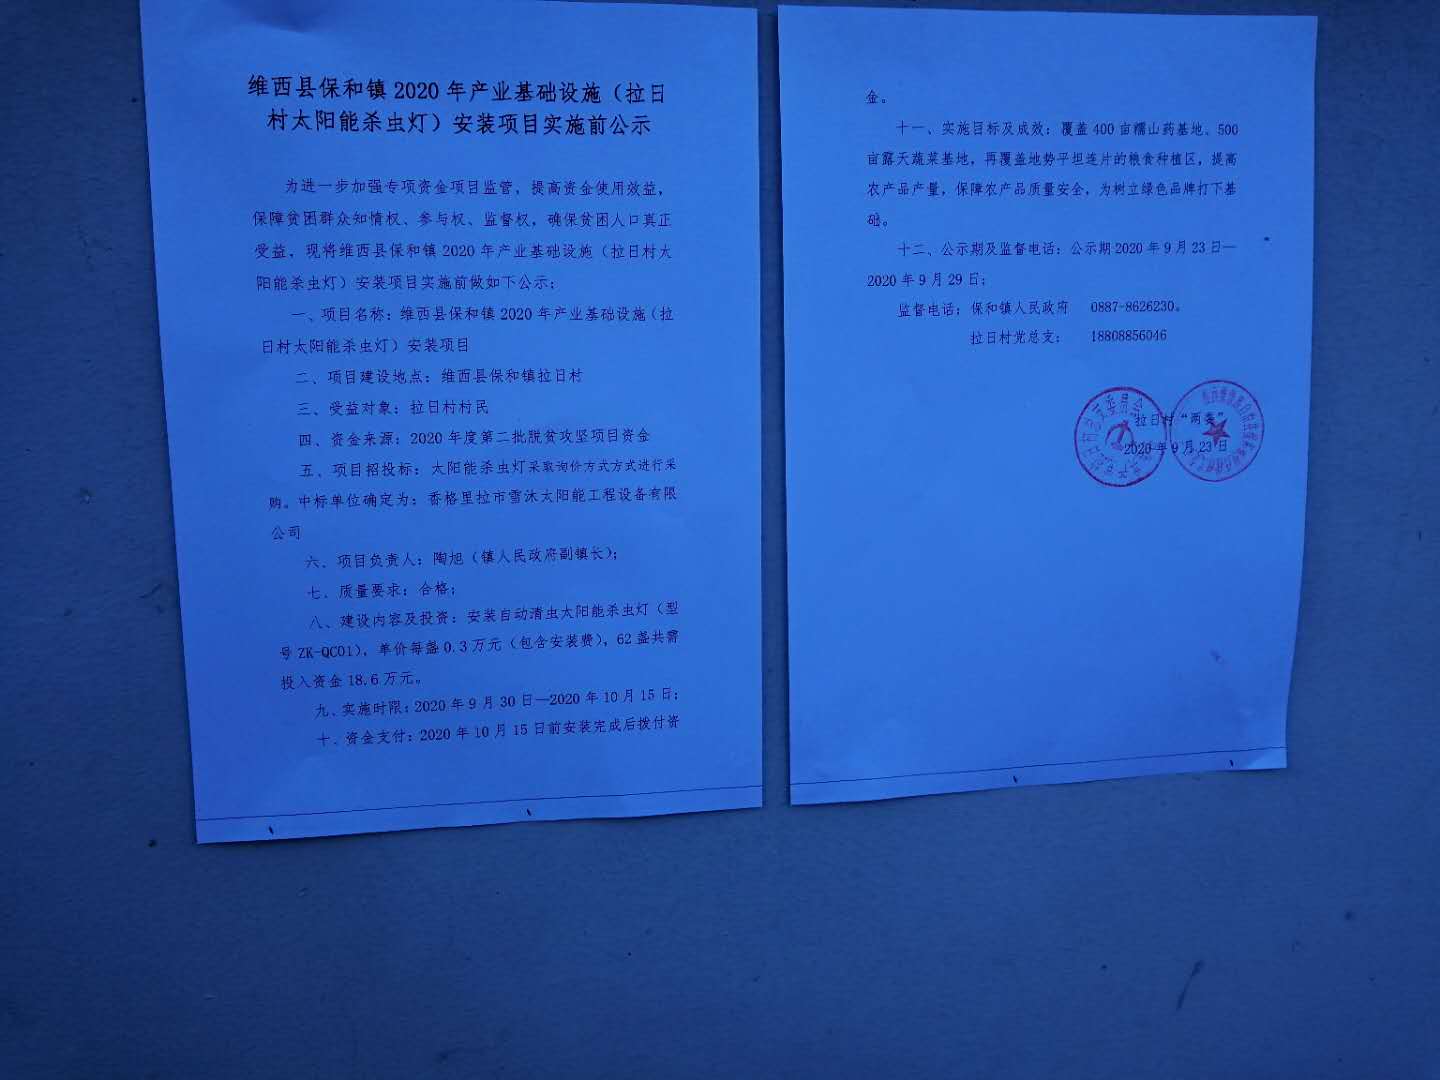 维西县保和镇 2020 年产业基础设施（拉日
村太阳能杀虫灯）安装项目实施前公示
为进一步加强专项资金项目监管，提高资金使用效益，
保障贫困群众知情权、参与权、监督权，确保贫困人口真正
受益，现将维西县保和镇 2020 年产业基础设施（拉日村太
阳能杀虫灯）安装项目实施前做如下公示；
一、项目名称：维西县保和镇 2020 年产业基础设施（拉
日村太阳能杀虫灯）安装项目
二、项目建设地点：维西县保和镇拉日村
三、受益对象：拉日村村民
四、资金来源：2020 年度第二批脱贫攻坚项目资金
五、项目招投标：太阳能杀虫灯采取询价方式方式进行采
购。中标单位确定为：香格里拉市雪沐太阳能工程设备有限
公司
六、项目负责人：陶旭（镇人民政府副镇长）；
七、质量要求：合格；
八、建设内容及投资：安装自动清虫太阳能杀虫灯（型
号 ZK-QC01），单价每盏 0.3 万元（包含安装费），62 盏共需
投入资金 18.6 万元。
九、实施时限：2020 年 9 月 30 日—2020 年 10 月 15 日；
十、资金支付：2020 年 10 月 15 日前安装完成后拨付资
金。
十一、实施目标及成效：覆盖 400 亩糯山药基地、500
亩露天蔬菜基地，再覆盖地势平坦连片的粮食种植区，提高
农产品产量，保障农产品质量安全，为树立绿色品牌打下基
础。
十二、公示期及监督电话：公示期 2020 年 9 月 23 日—
2020 年 9 月 29 日；
监督电话：保和镇人民政府 0887-8626230。
拉日村党总支： 18808856046
拉日村“两委”
2020 年 9 月 23 日